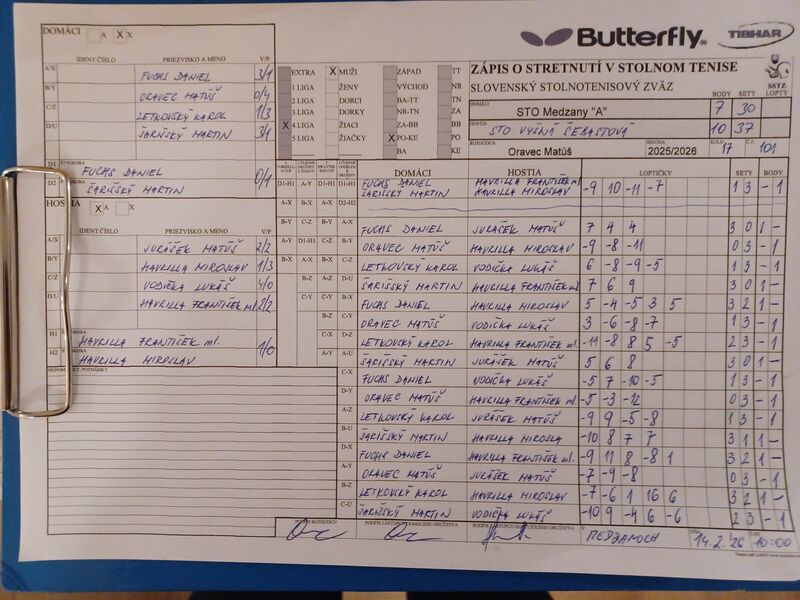 DOMÁCI A X X
Butterfly
TIBHAR
IDENT. ČÍSLO PRIEZVISKO A MENO V/P
A/X FUCHS DANIEL 3/1
B/Y ORAVEC MATÚŠ 0/4
C/Z LETKOVSKÝ KAROL 1/3
D/U ŠARIŠSKÝ MARTIN 3/1
D1 ŠTVORHRA FUCHS DANIEL
D2 ŠARIŠSKÝ MARTIN 0/1
EXTRA X MUŽI ZÁPAD TT
1 LIGA ŽENY VÝCHOD NR
2 LIGA DORCI BA-TT TN
3 LIGA DORKY NR-TN ZA
X 4 LIGA ŽIACI ZA-BB BB
5 LIGA ŽIAČKY X PO-KE PO
BA KE
ZÁPIS O STRETNUTÍ V STOLNOM TENISE
SLOVENSKÝ STOLNOTENISOVÝ ZVÄZ
SSTZ
BODY SETY LOPTY
DOMÁCI STO Medzany "A" 7 30
HOSTIA STO VYŠNÁ ŠEBASTOVÁ 10 37
ROZHODCA Oravec Matúš SEZÓNA 2025/2026 KOLO 17 Č. 101
HOSTIA A X X
IDENT. ČÍSLO PRIEZVISKO A MENO V/P
A/X JURÁŠEK MATÚŠ 2/2
B/Y HAVRILLA MIROSLAV 1/3
C/Z VODIČKA LUKÁŠ 4/0
D/U HAVRILLA FRANTIŠEK ml. 2/2
H1 ŠTVORHRA HAVRILLA FRANTIŠEK ml.
H2 HAVRILLA MIROSLAV 1/0
PRIPOMIENKY, POZNÁMKY
DOMÁCI HOSTIA LOPTIČKY SETY BODY
D1-H1 FUCHS DANIEL HAVRILLA FRANTIŠEK ml. -9 10 -11 -7 1 3 - 1
ŠARIŠSKÝ MARTIN HAVRILLA MIROSLAV
D2-H2
A-Y FUCHS DANIEL JURÁŠEK MATÚŠ 7 4 4 3 0 1 -
ORAVEC MATÚŠ HAVRILLA MIROSLAV -9 -8 -11 0 3 - 1
LETKOVSKÝ KAROL VODIČKA LUKÁŠ 6 -8 -9 -5 1 3 - 1
ŠARIŠSKÝ MARTIN HAVRILLA FRANTIŠEK ml. 7 6 9 3 0 1 -
FUCHS DANIEL HAVRILLA MIROSLAV 5 -4 -5 3 5 3 2 1 -
ORAVEC MATÚŠ VODIČKA LUKÁŠ 3 -6 -8 -7 1 3 - 1
LETKOVSKÝ KAROL HAVRILLA FRANTIŠEK ml. -11 -8 8 5 -5 2 3 - 1
A-U ŠARIŠSKÝ MARTIN JURÁŠEK MATÚŠ 5 6 8 3 0 1 -
C-X FUCHS DANIEL VODIČKA LUKÁŠ -5 7 -10 -5 1 3 - 1
D-Y ORAVEC MATÚŠ HAVRILLA FRANTIŠEK ml. -5 -3 -12 0 3 - 1
A-Z LETKOVSKÝ KAROL JURÁŠEK MATÚŠ -9 9 -5 -8 1 3 - 1
B-U ŠARIŠSKÝ MARTIN HAVRILLA MIROSLA -10 8 7 7 3 1 1 -
D-X FUCHS DANIEL HAVRILLA FRANTIŠEK ml. -9 11 8 -8 1 3 2 1 -
A-Y ORAVEC MATÚŠ JURÁŠEK MATÚŠ -7 -9 -8 0 3 - 1
B-Z LETKOVSKÝ KAROL HAVRILLA MIROSLAV -7 -6 1 16 6 3 2 1 -
C-U ŠARIŠSKÝ MARTIN VODIČKA LUKÁŠ -10 9 -4 6 -6 2 3 - 1
PODPIS ROZHODCU PODPIS ZÁSTUPCU DOMÁCEHO DRUŽSTVA PODPIS ZÁSTUPCU HOSŤUJÚCEHO DRUŽSTVA V MEDZANOCH 14.2.'26 10:00